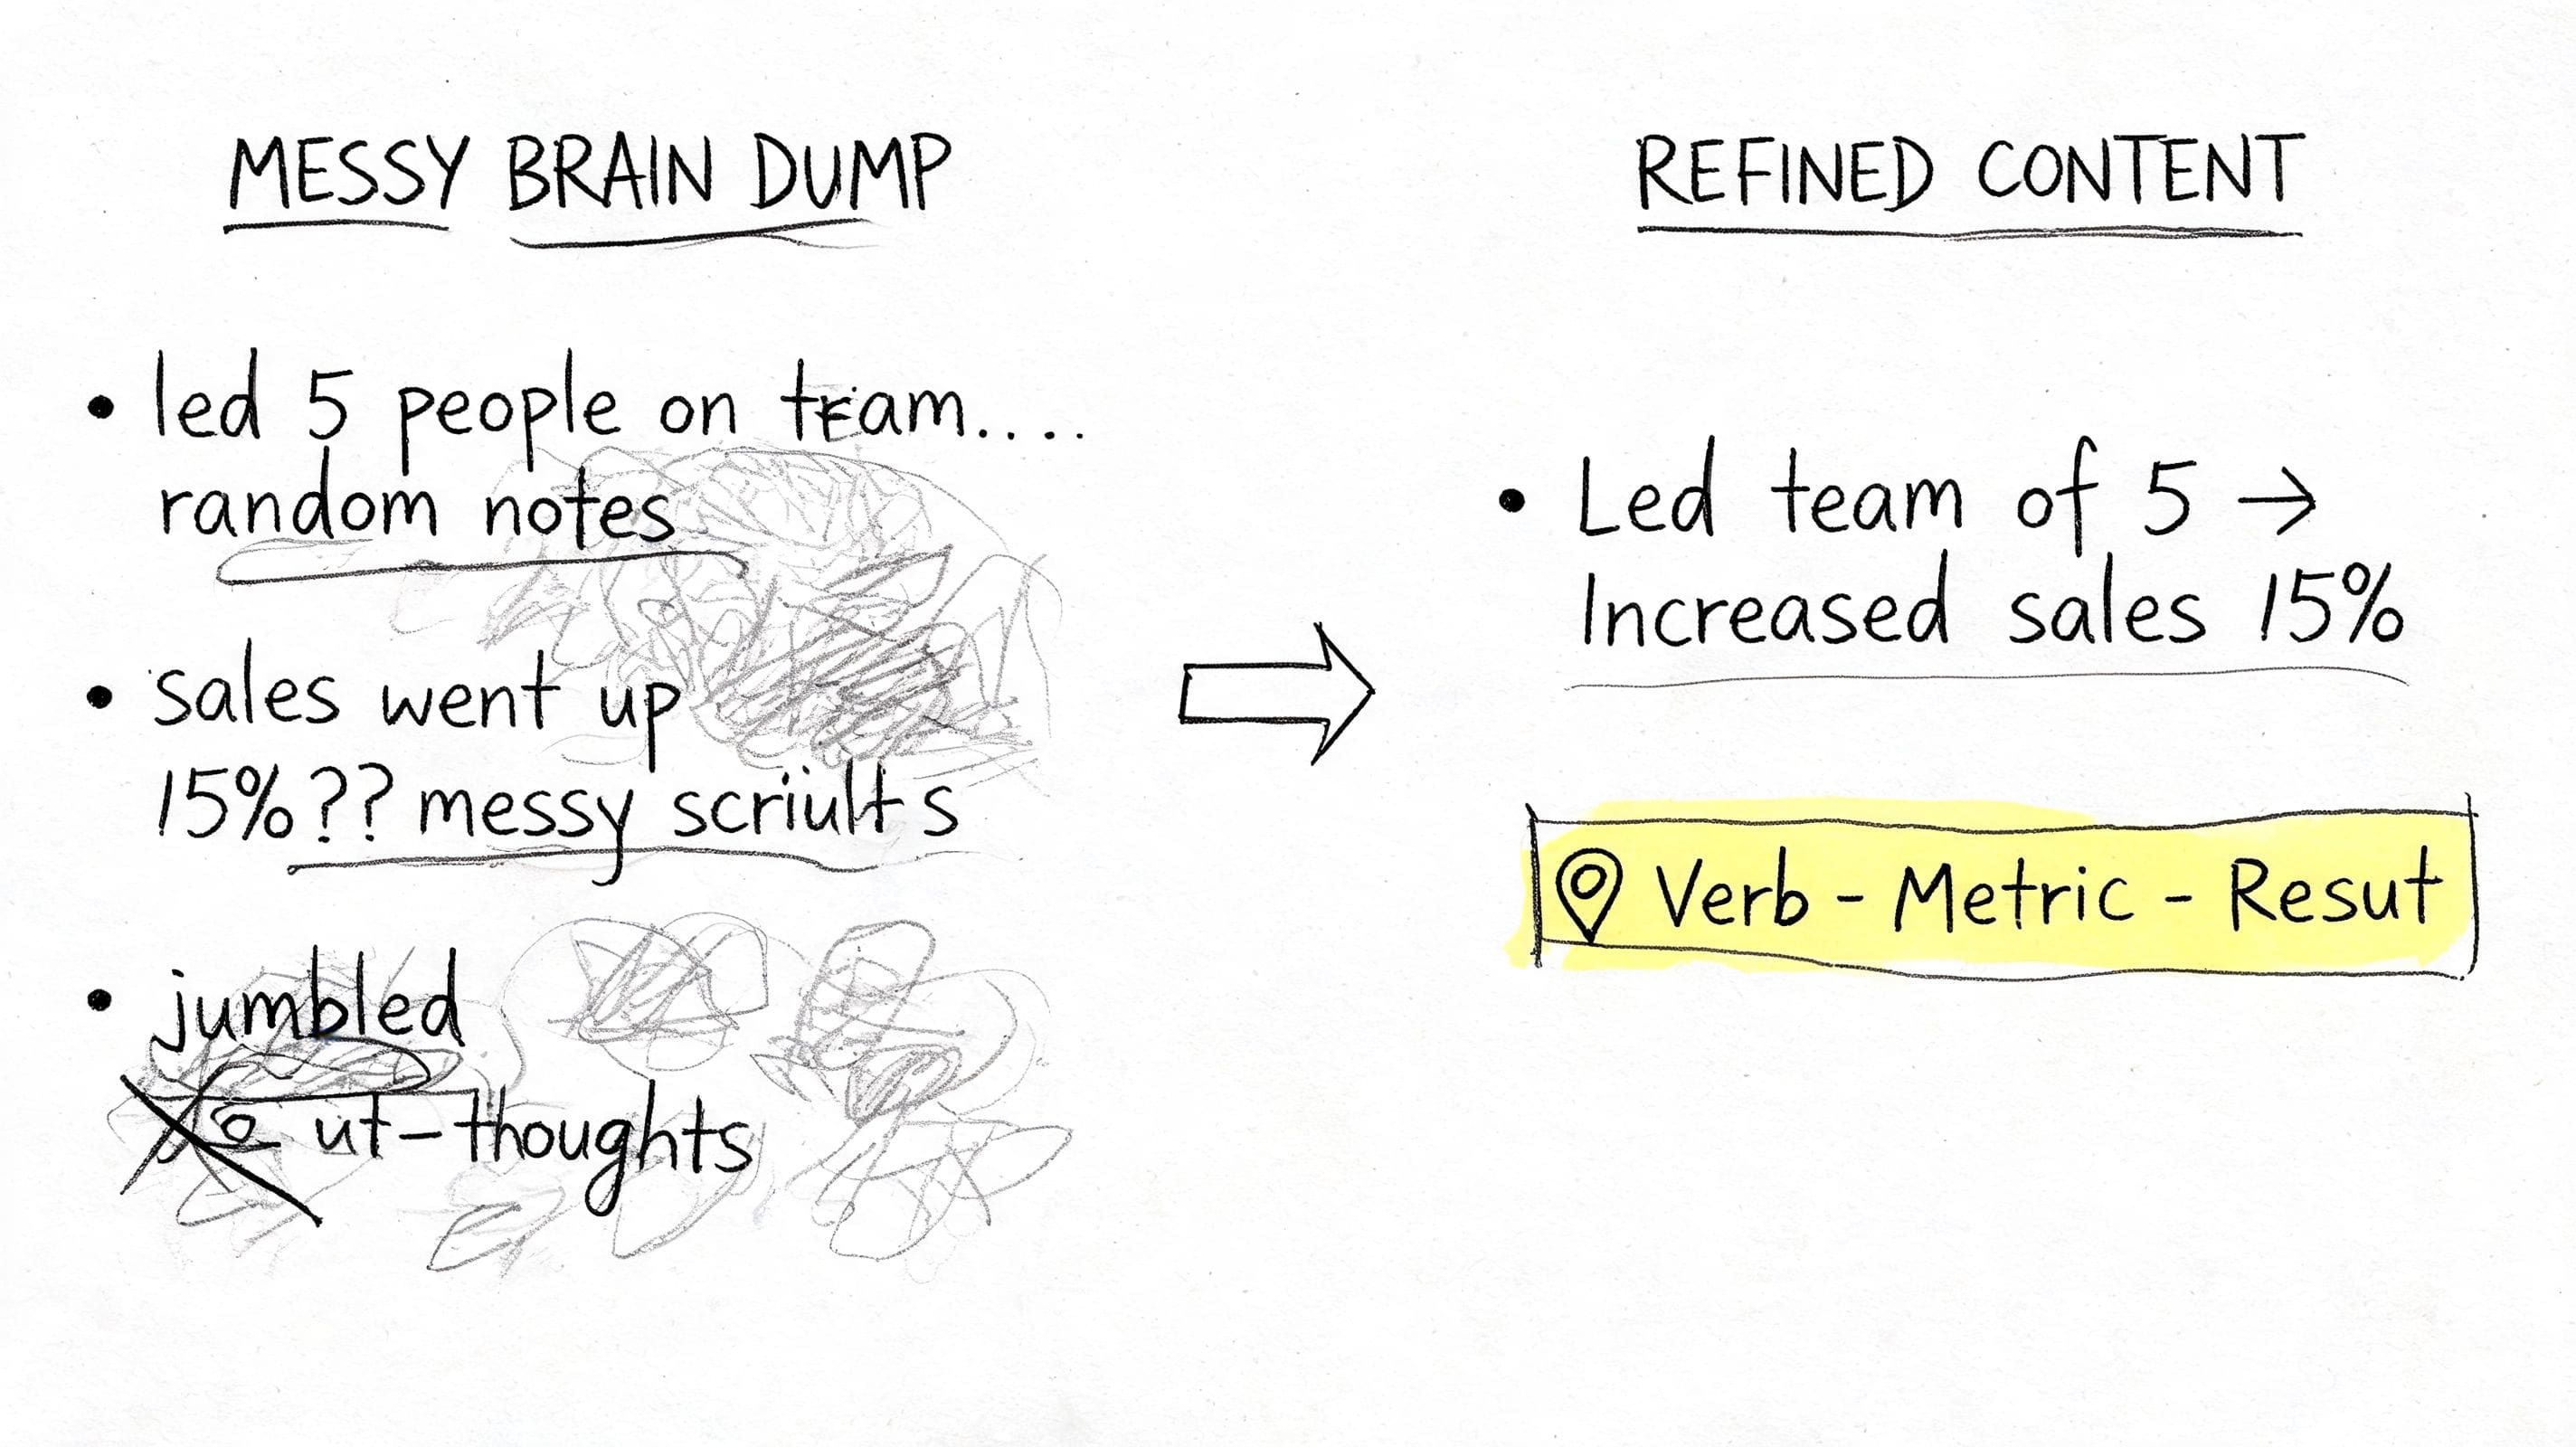 MESSY BRAIN DUMP
• led 5 people on team....
random notes
• sales went up
15%?? messy scriults
• jumbled
ut-thoughts
REFINED CONTENT
• Led team of 5 →
Increased sales 15%
Verb - Metric - Resut